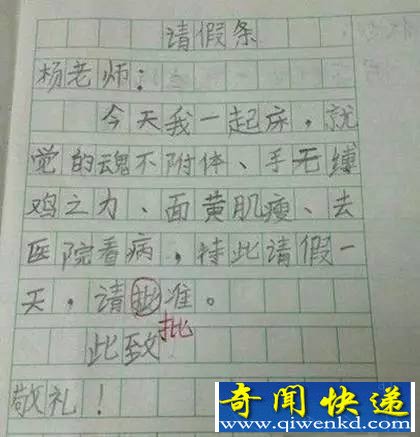 请假条
杨老师：
今天我一起床，就
觉的魂不附体、手无缚
鸡之力、面黄肌瘦、去
医院看病，特此请假一
天，请准。
批
此致
敬礼！
奇闻快递
www.qiwenkd.com